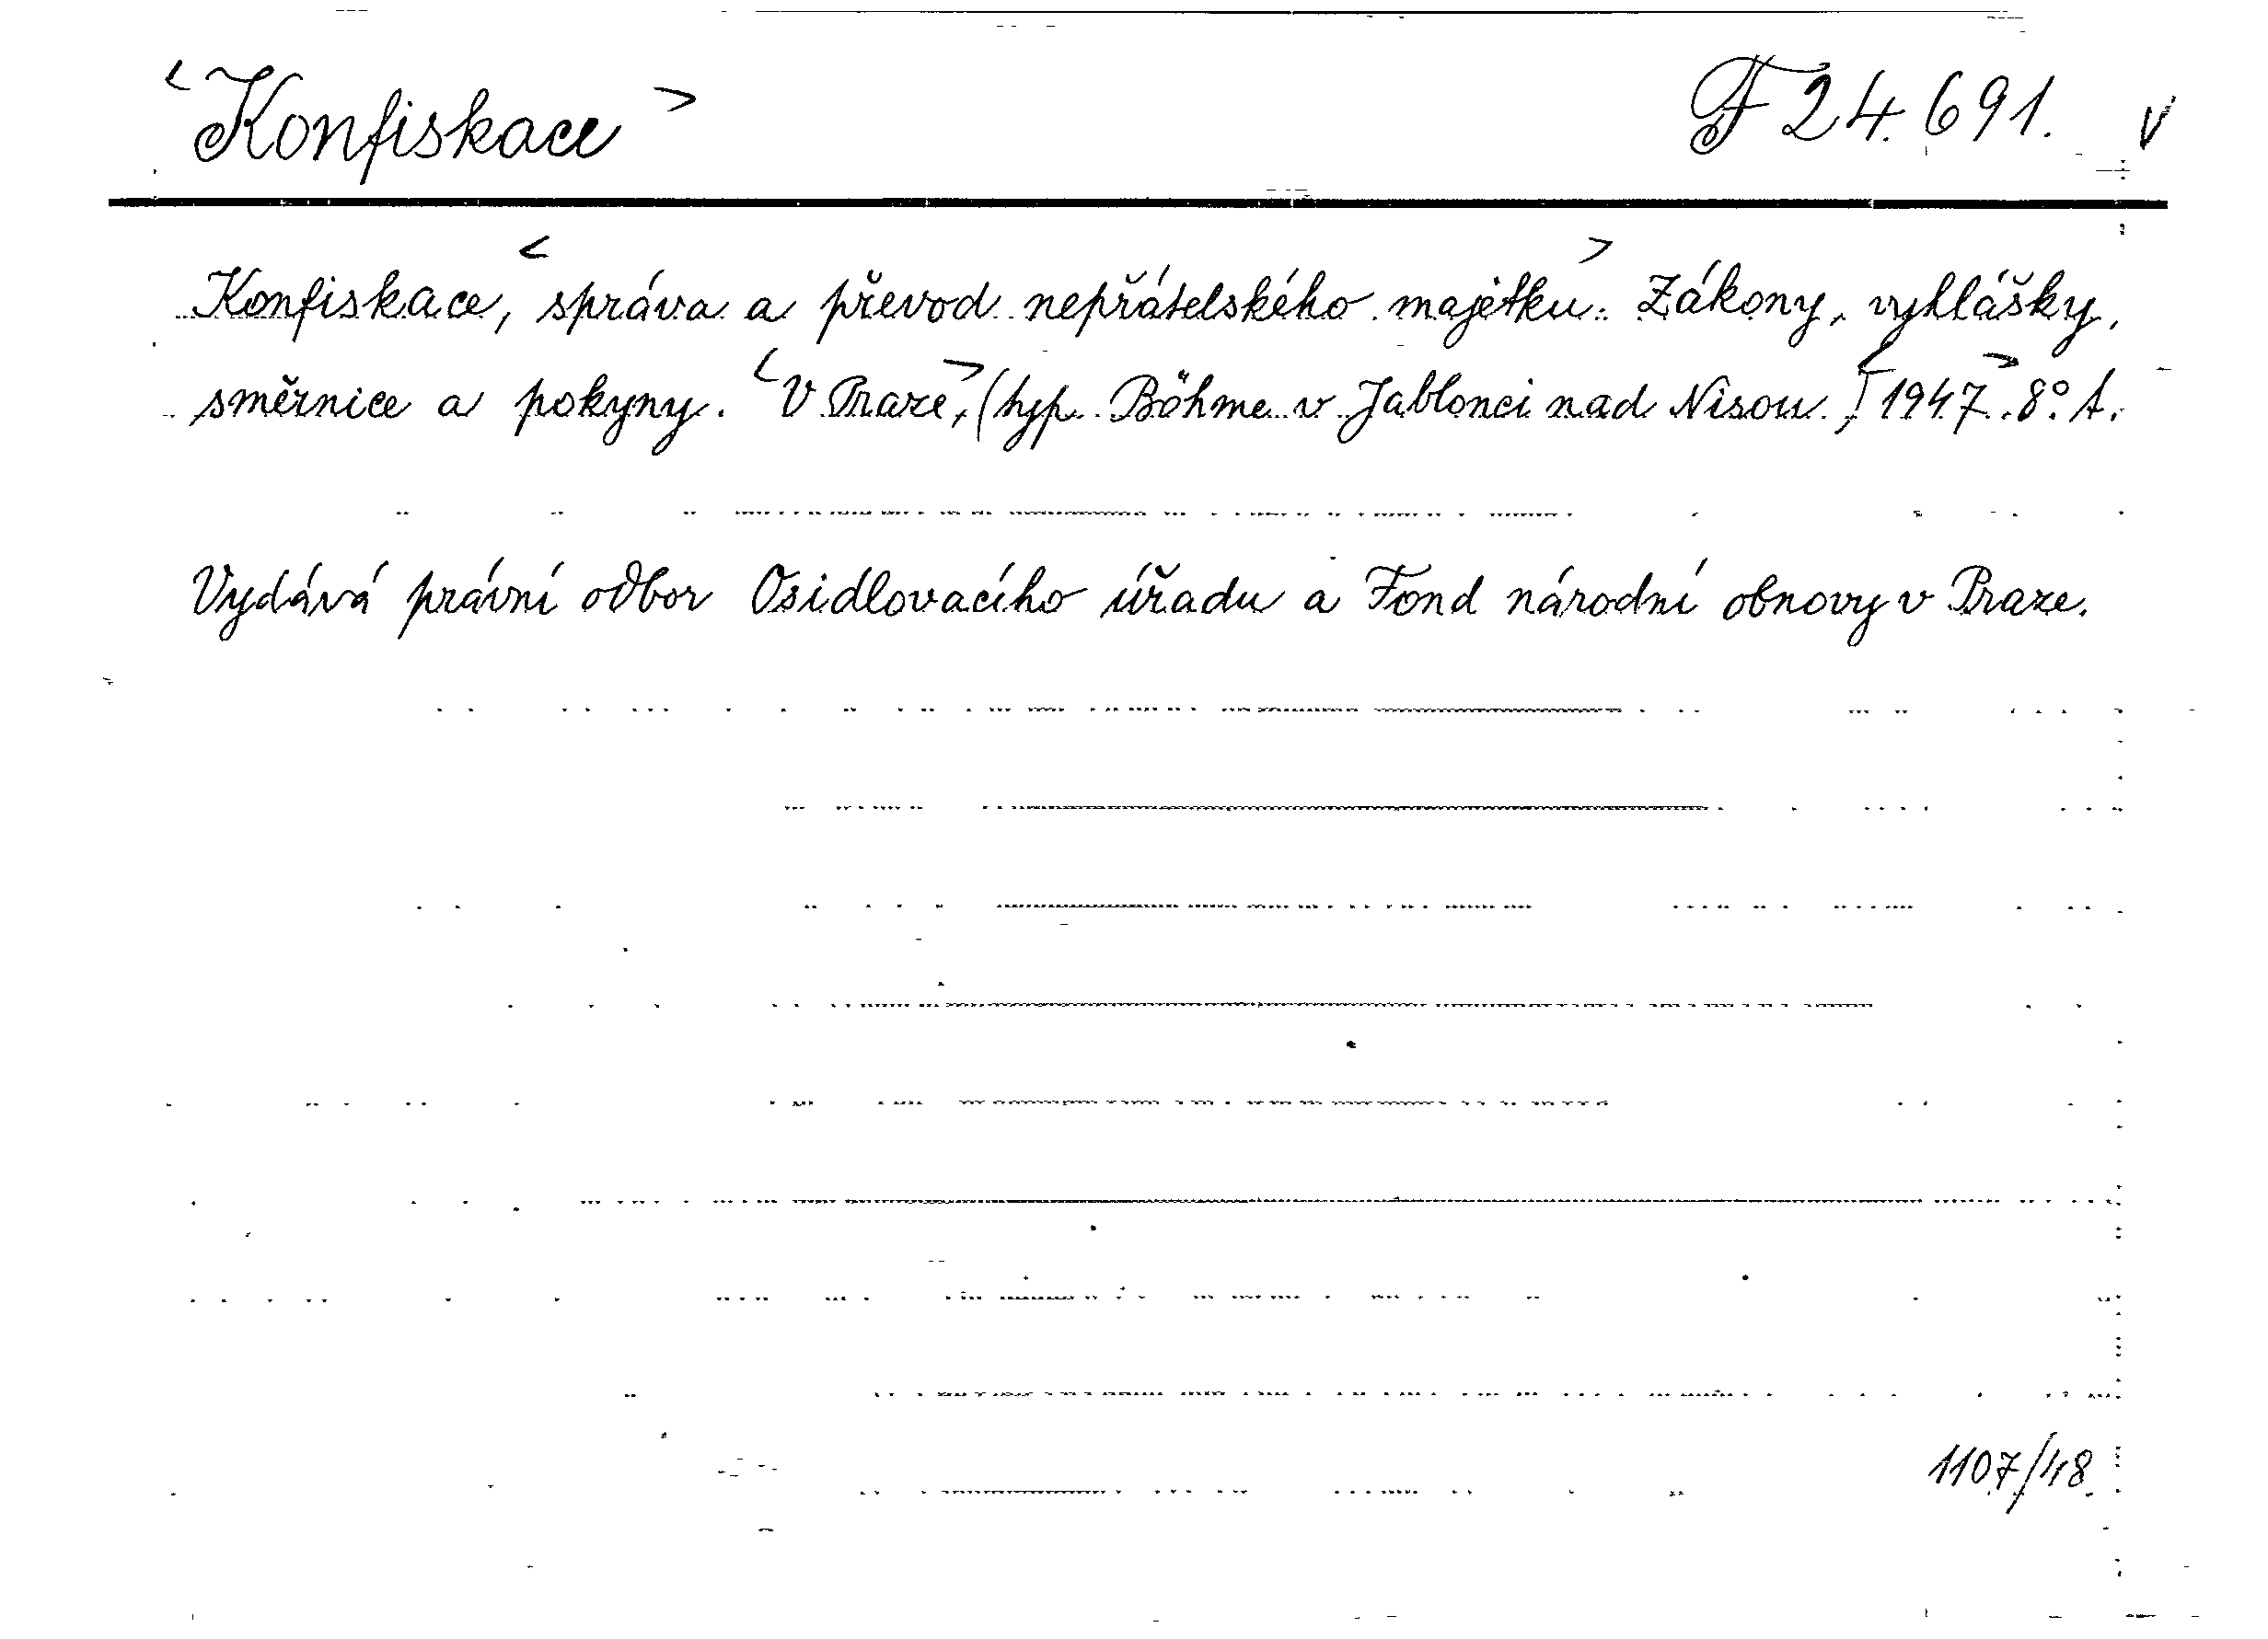 <Konfiskace> F 24.691. V
Konfiskace, <správa a převod nepřátelského majetku.> Zákony, vyhlášky,
směrnice a pokyny. <V Praze,> (typ. Böhme v Jablonci nad Nisou.) <1947.> 8°. A.
Vydává právní odbor Osidlovacího úřadu a Fond národní obnovy v Praze.
1107/48.